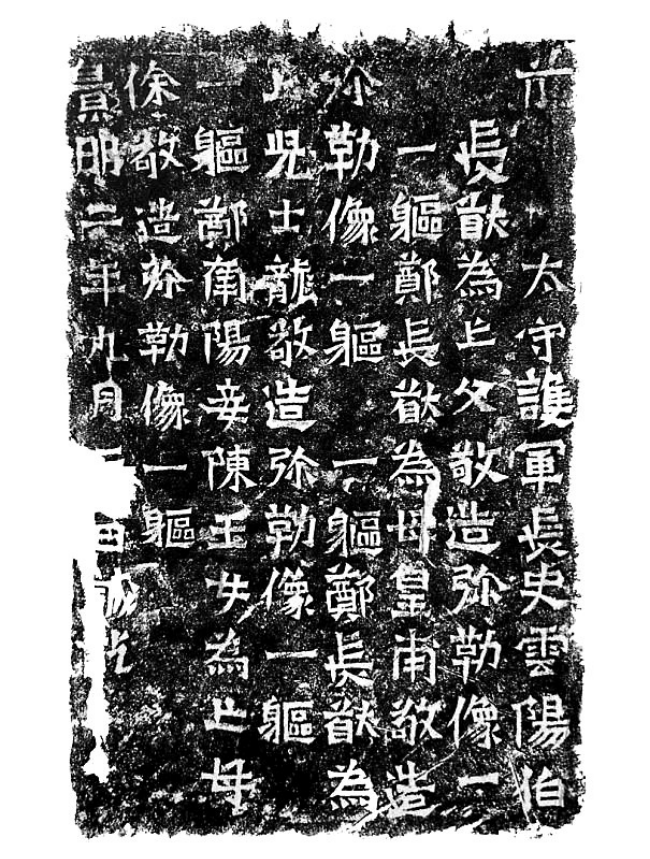 前太守護軍長史雲陽伯
長猷為亡父敬造弥勒像一
一軀鄭長猷為母皇甫敬造
弥勒像一軀一軀鄭長猷為
亡兒士龍敬造弥勒像一軀
一軀鄭南陽妾陳玉女為亡母
徐敬造弥勒像一軀
景明二年九月日誡訖